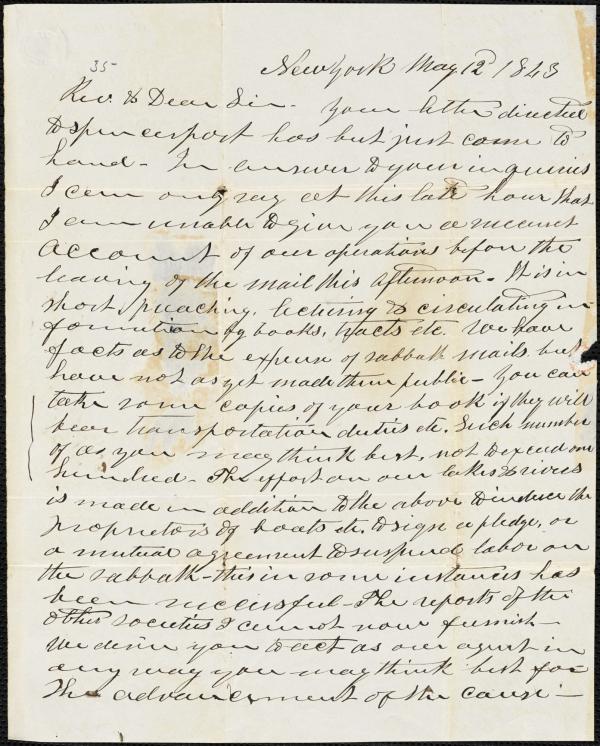 35
New York May 12 1843
Rev. & Dear Sir - Your letter directed
to Spencerport has but just come to
hand - In answer to your inquiries
I can only say at this late hour that
I am unable to give you a succinct
account of our operations before the
leaving of the mail this afternoon - It is in
short, preaching, lecturing & circulating in-
formation by books, tracts etc. We have
facts as to the expense of sabbath mails but
have not as yet made them public - You can
take some copies of your book if they will
bear transportation duties etc. Such number
of as you may think best, not to exceed one
hundred - The effort on our lakes & rivers
is made in addition to the above to induce the
proprietors of boats etc. to sign a pledge, or
a mutual agreement to suspend labor on
the sabbath - this in some instances has
been successful - The reports of the
other societies I cannot now furnish -
We desire you to act as our agent in
any way you may think best for
the advancement of the cause -